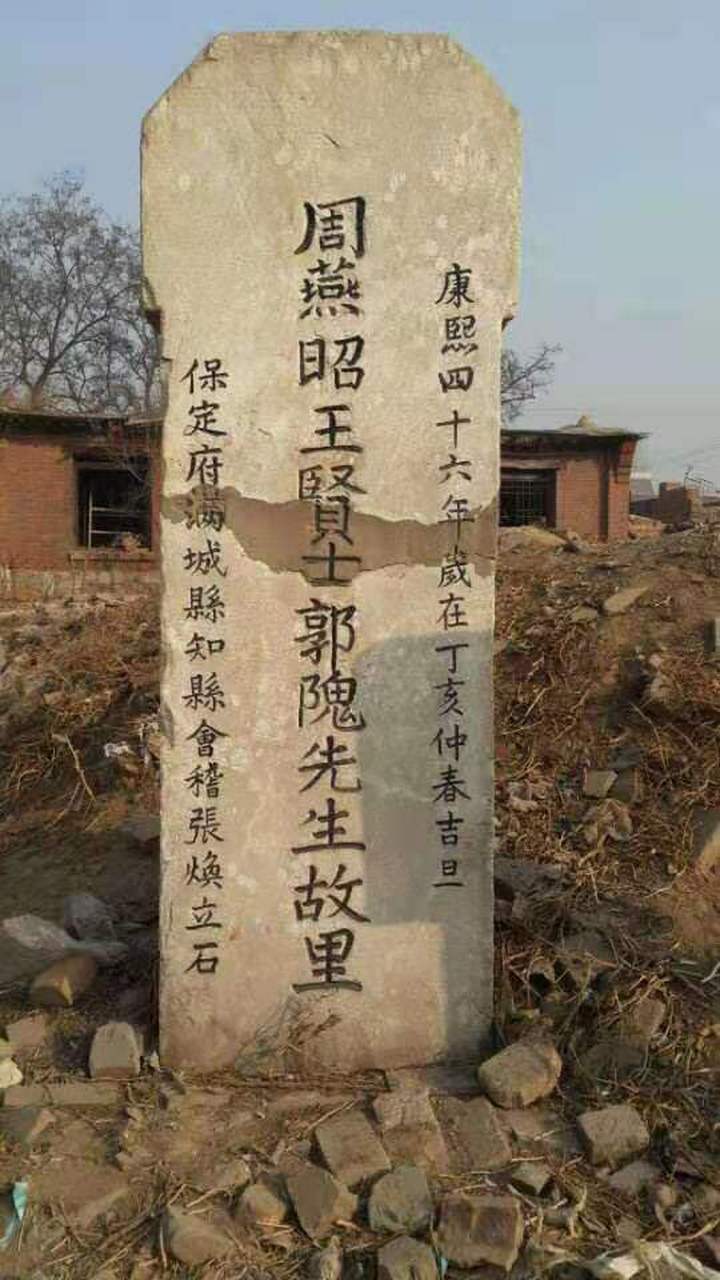 康熙四十六年歲在丁亥仲春吉旦
周燕昭王賢士郭隗先生故里
保定府滿城縣知縣會稽張煥立石